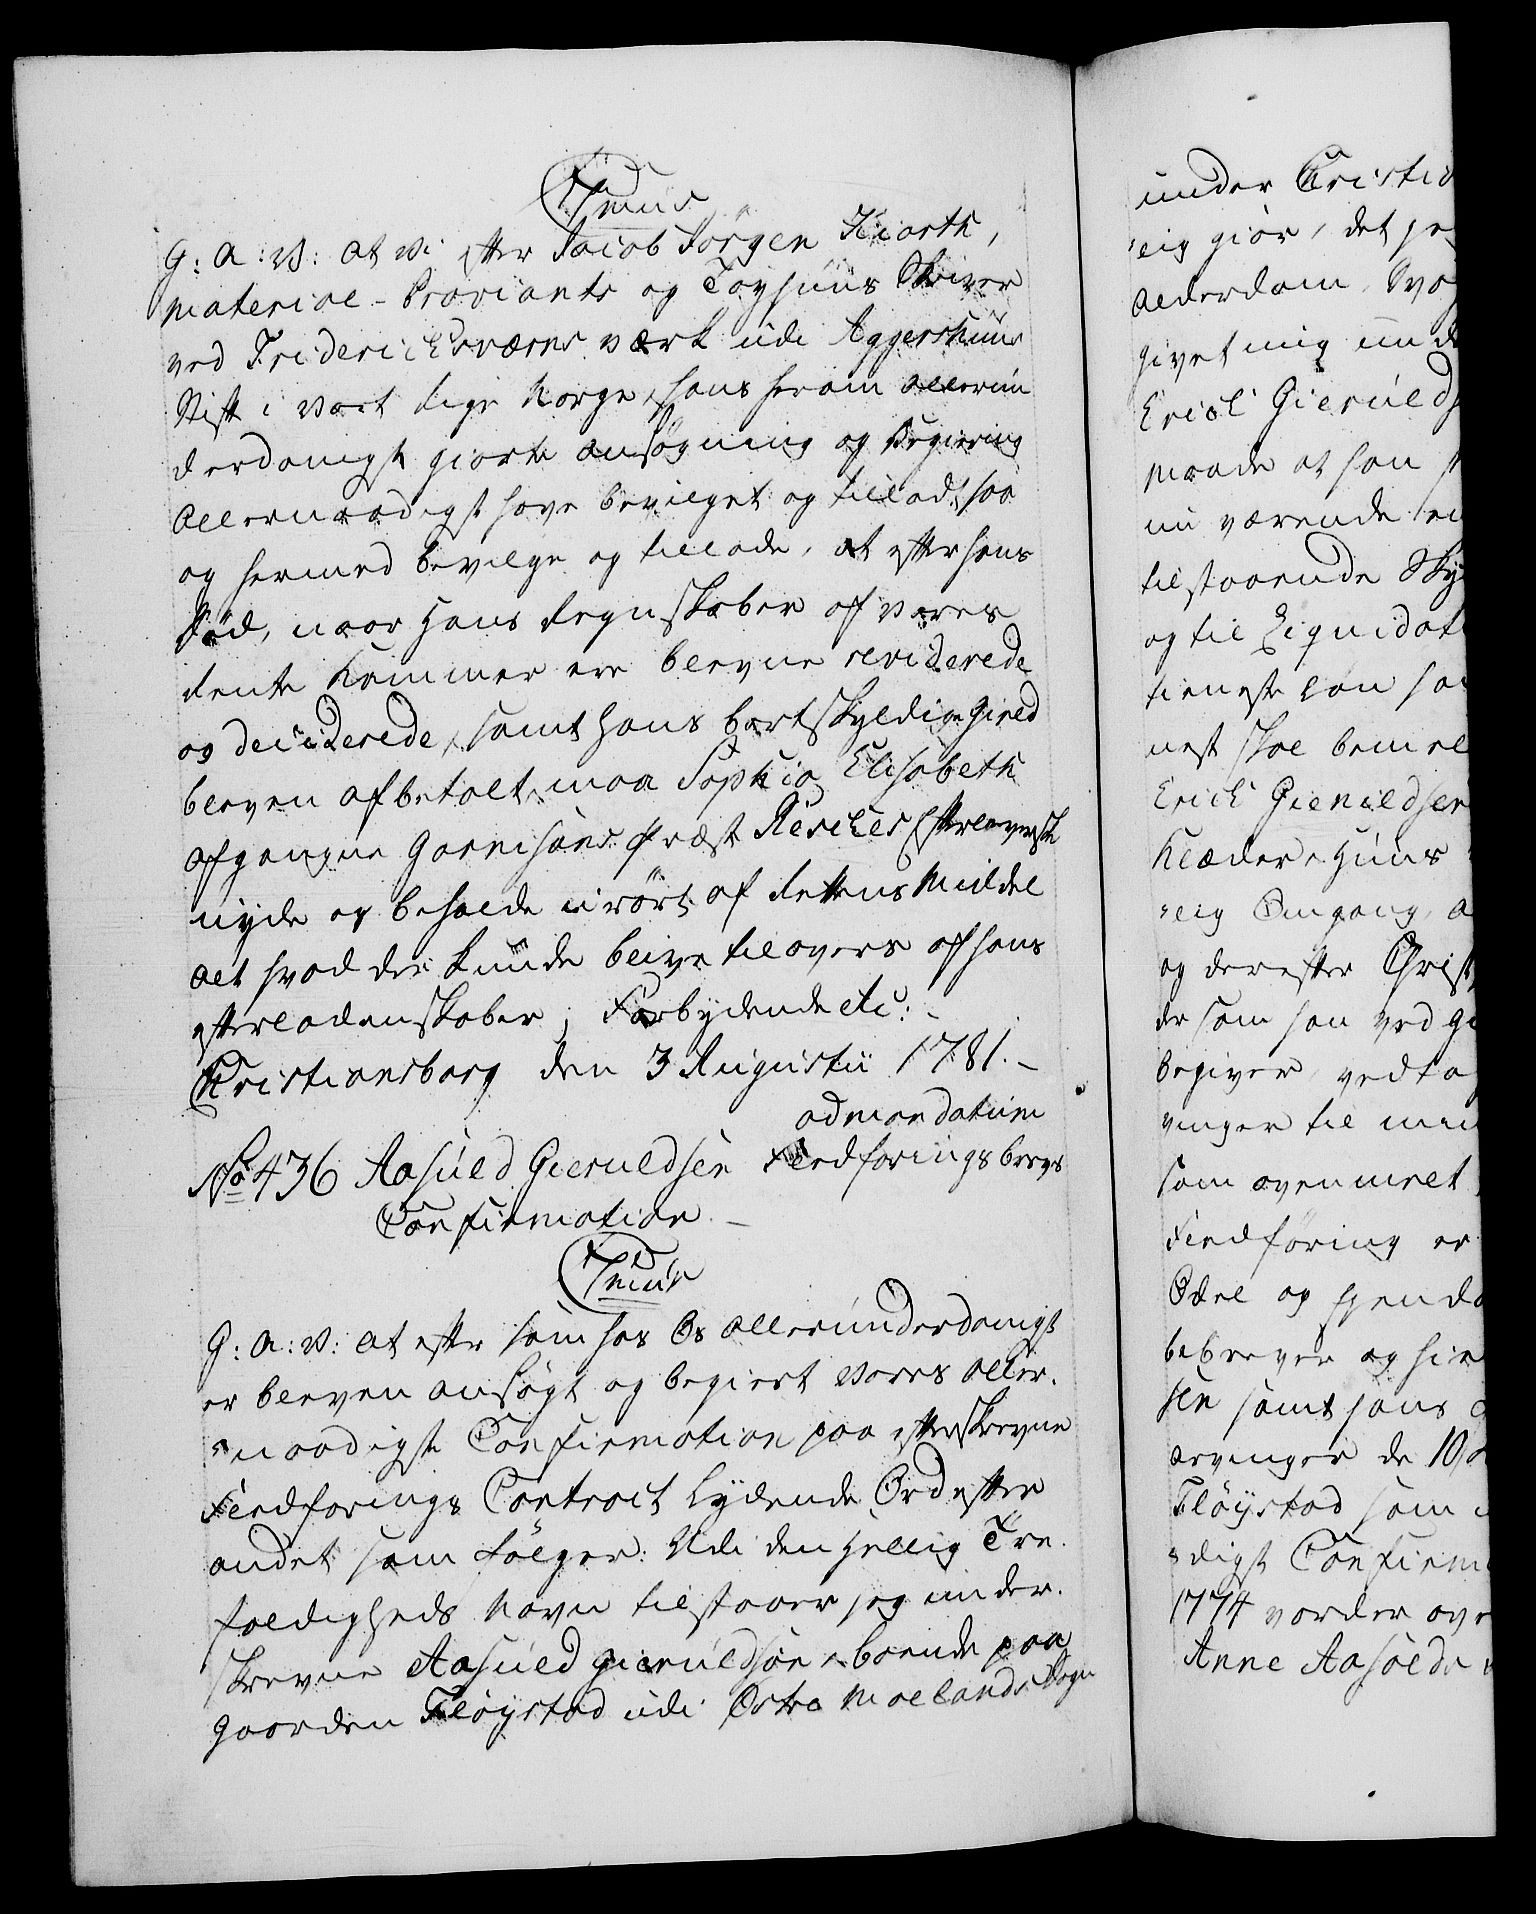 C7mus
G: A: V: at vi efter Jacob Jörgen Kiorth,
Material- Proviants og Töyhuus Skriver
ved Friderichsværns værk udi Aggershuus
Stift i vort Rige Norge, hans herom allerun
derdanigst giorte ansögning og Begiering
Allernaadigst have bevilget og tilladt, saa
og hermed bevilge og tillade, at efter hans
Död, naar Hans Regnskaber af vores
Rente Kammer ere blevne reviderede
og deciderede, samt hans bortskyldige Gield
bleven afbetalt, maa Sophia Elisabeth
afgangne Garnisons Præst Resches Efterleverske
nyde og beholde urört af Rettens Middel
alt hvad der kunde blive tilovers af hans
efterladenskaber; Forbydende etc:
Christiansborg den 3 Augustii 1781.
ad mandatum
No 436 Aasuld Gieruldsen Flödforings brevs
Confirmation.
C7mus
G: A: V: at efter som hos Os allerunderdanigst
er bleven ansögt og begiert vores aller-
naadigste Confirmation paa efterskrevne
Flödforings Contract lydende Ord efter
andet som fölger: Udi den Hellig Tre-
foldigheds Navn tilstaaer jeg under-
skrevne Aasuld Gieruldsön boende paa
Gaarden Flöystad udi Östre Molands Sogn
under Christia
eig giör, det pe
Alderdom, Svag
givet mig un d
Erich Gieruldse
Maade at han
nu værende
tilstaaende Sky
og til Liquidati
tieneste lön saa
nest skal bemel
Erich Gieruldsen
Klæder, Huus
elig Omgang, a
og derefter Christ
der som han ved G
begiver, vedta
vinger til min
som ovenmelt
Flödföring er
Odel og Eyendo
bebrever og hie
sen samt hans
arvinger de 10
Flöystad som
digst Confirma
1774 vorder ove
Anne Aasolds